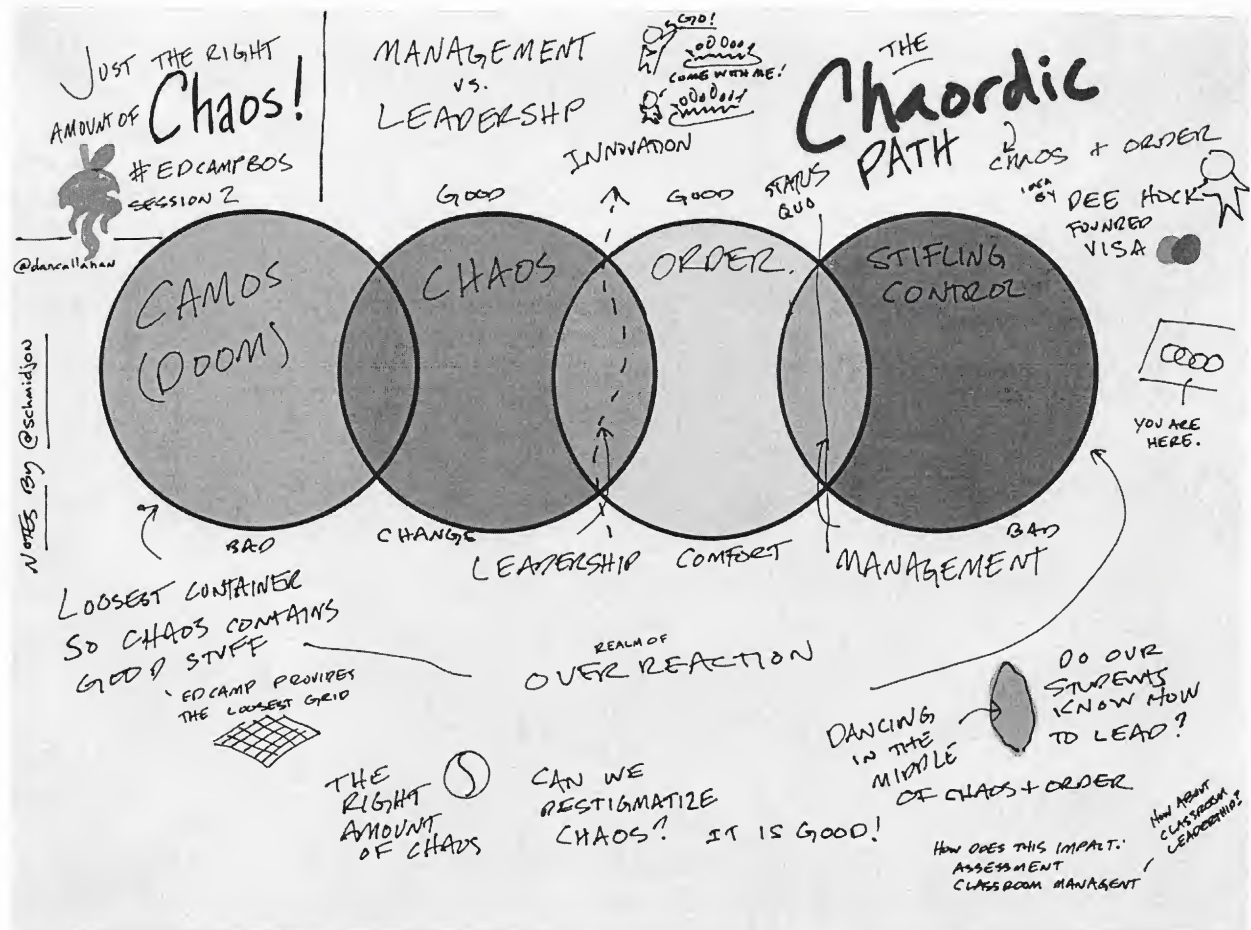 JUST THE RIGHT
AMOUNT OF Chaos!
#EDCAMPBOS
SESSION 2
@dancallahan
NOTES BY @schmidjon
MANAGEMENT
VS.
LEADERSHIP
GO!
COME WITH ME!
THE
Chaordic
PATH
CHAOS + ORDER
IDEA
BY
DEE HOCK
FOUNDED
VISA
INNOVATION
GOOD
GOOD
STATUS
QUO
CAMOS
(DOOM)
CHAOS
ORDER.
STIFLING
CONTROL
YOU ARE
HERE.
BAD
CHANGE
LEADERSHIP
COMFORT
MANAGEMENT
BAD
LOOSEST CONTAINER
SO CHAOS CONTAINS
GOOD STUFF
EDCAMP PROVIDES
THE LOOSEST GRID
REALM OF
OVER REACTION
DANCING
IN THE
MIDDLE
OF CHAOS + ORDER
DO OUR
STUDENTS
KNOW HOW
TO LEAD?
THE
RIGHT
AMOUNT
OF CHAOS
CAN WE
DESTIGMATIZE
CHAOS? IT IS GOOD!
HOW DOES THIS IMPACT:
ASSESSMENT
CLASSROOM MANAGENT
HOW ABOUT
CLASSROOM
LEADERSHIP?